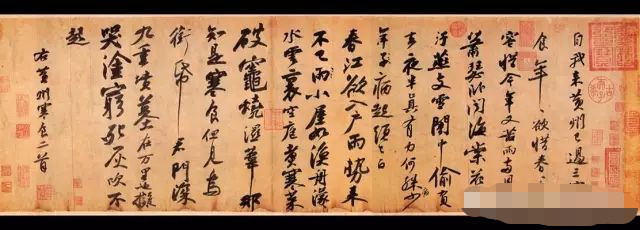 自我來黃州已過三寒
食年〻欲惜春〻
容惜今年又苦雨兩月
蕭瑟卧聞海棠花
汙燕支雪闇中偷負
去夜半真有力何殊少
年子病起頭已白
春江欲入戶雨勢來
不已雨小屋如漁舟濛〻
水雲裏空庖煮寒菜
破竈燒濕葦那
知是寒食但見烏
銜帋君門深
九重墳墓在万里也擬
哭塗窮死灰吹不
起
右黃州寒食二首